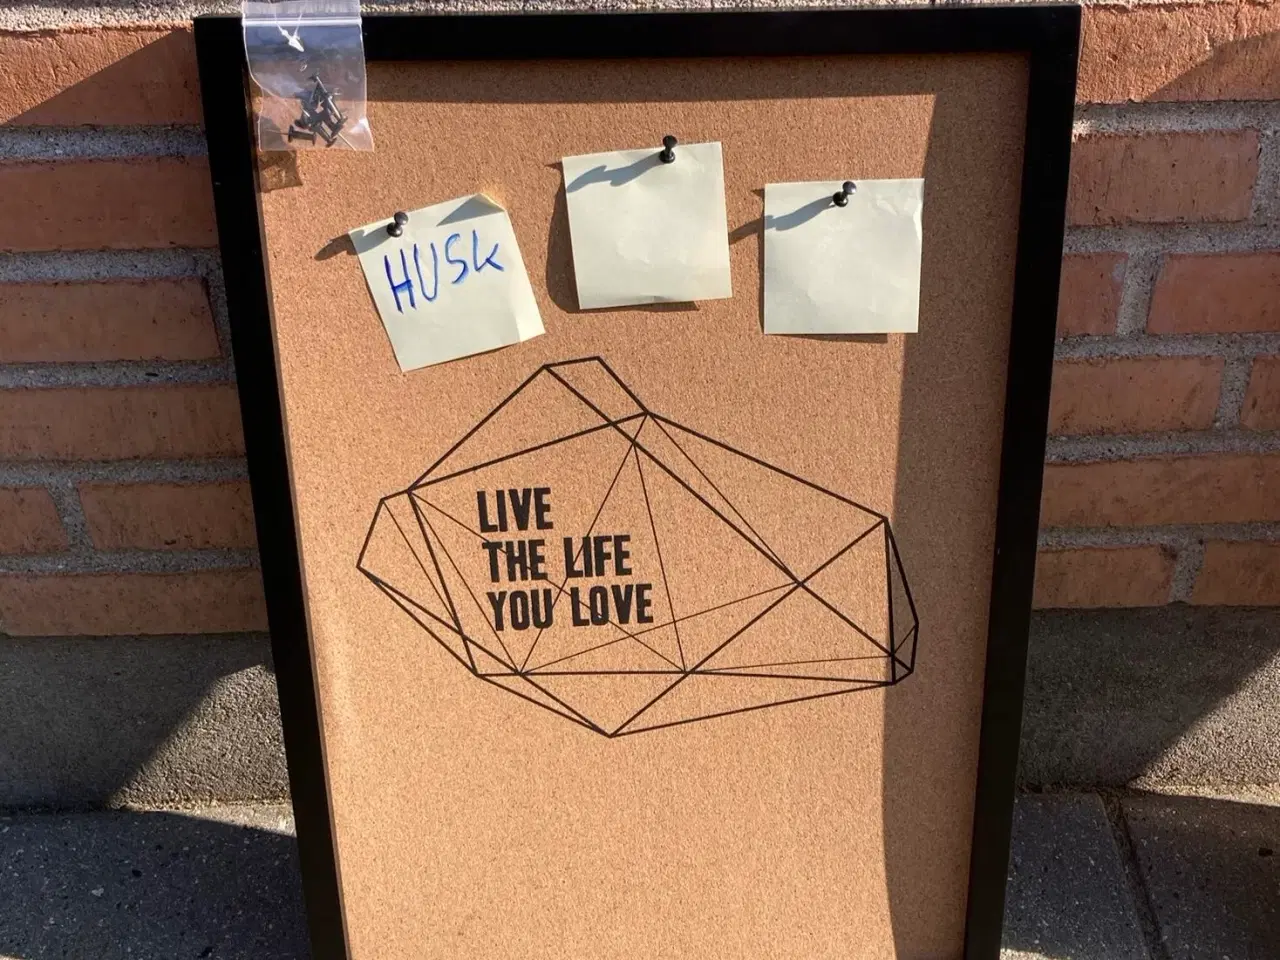 HUSK
LIVE
THE LIFE
YOU LOVE